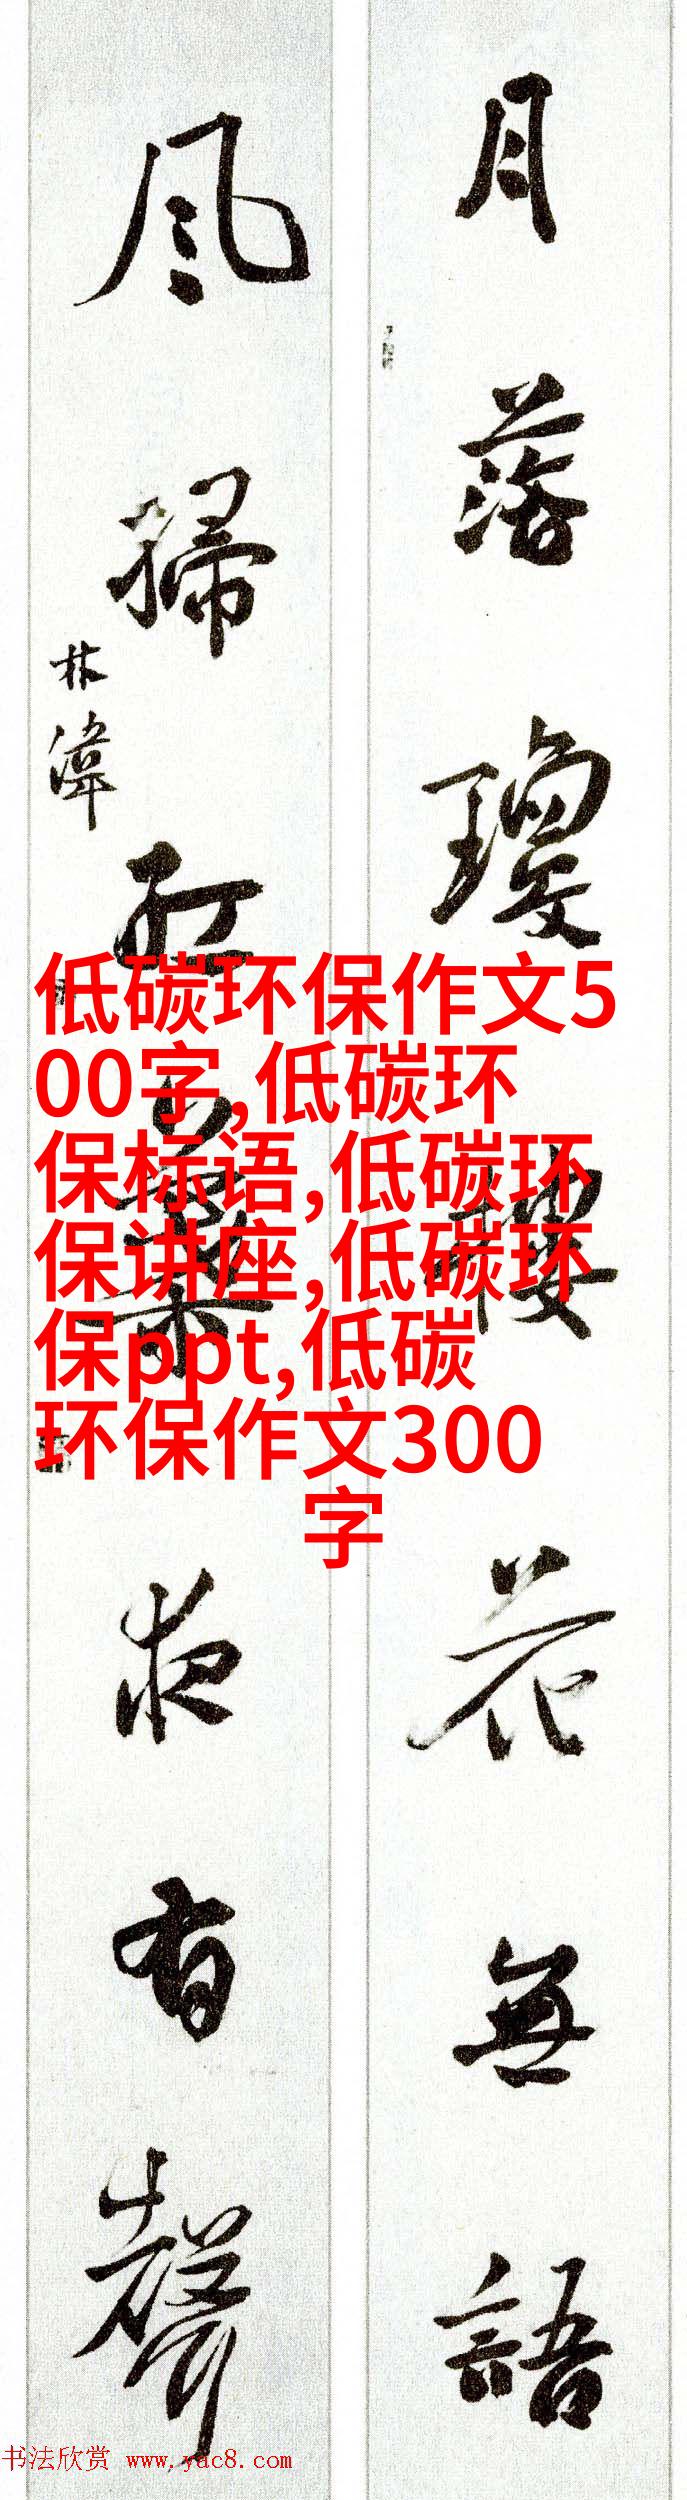 月落琼楼花無語
風掃紅葉夜有聲
林濤
低碳环保作文5
00字,低碳环
保标语,低碳环
保讲座,低碳环
保ppt,低碳
环保作文300
字
书法欣赏 www.yac8.com